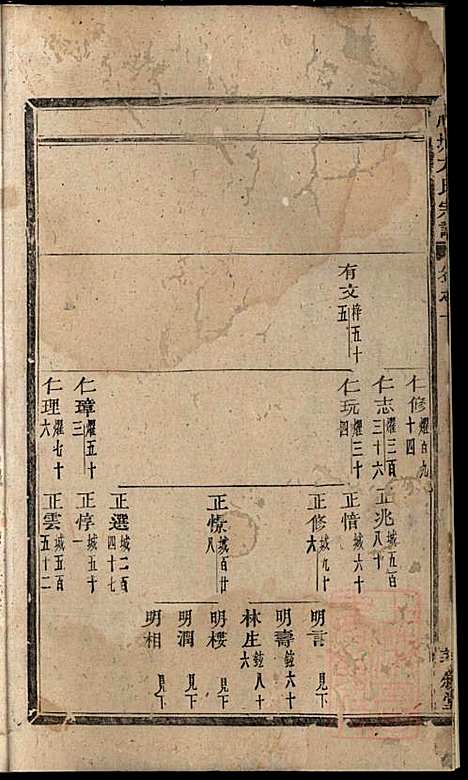 氏宗譜
有文 梓五十五
仁修 燿百九十四
仁志 燿三百三十六
仁玩 燿三十四
仁璋 燿五十三
仁理 燿七十六
正兆 城五百八十
正愔 城六十
正修 城九十六
正憭 城百廿八
正選 城二百四十七
正惇 城五十一
正雲 城五百五十二
明言 見下
明壽 鉉六十
林生 鉉八十六
明樓 見下
明潤 見下
明相 見下